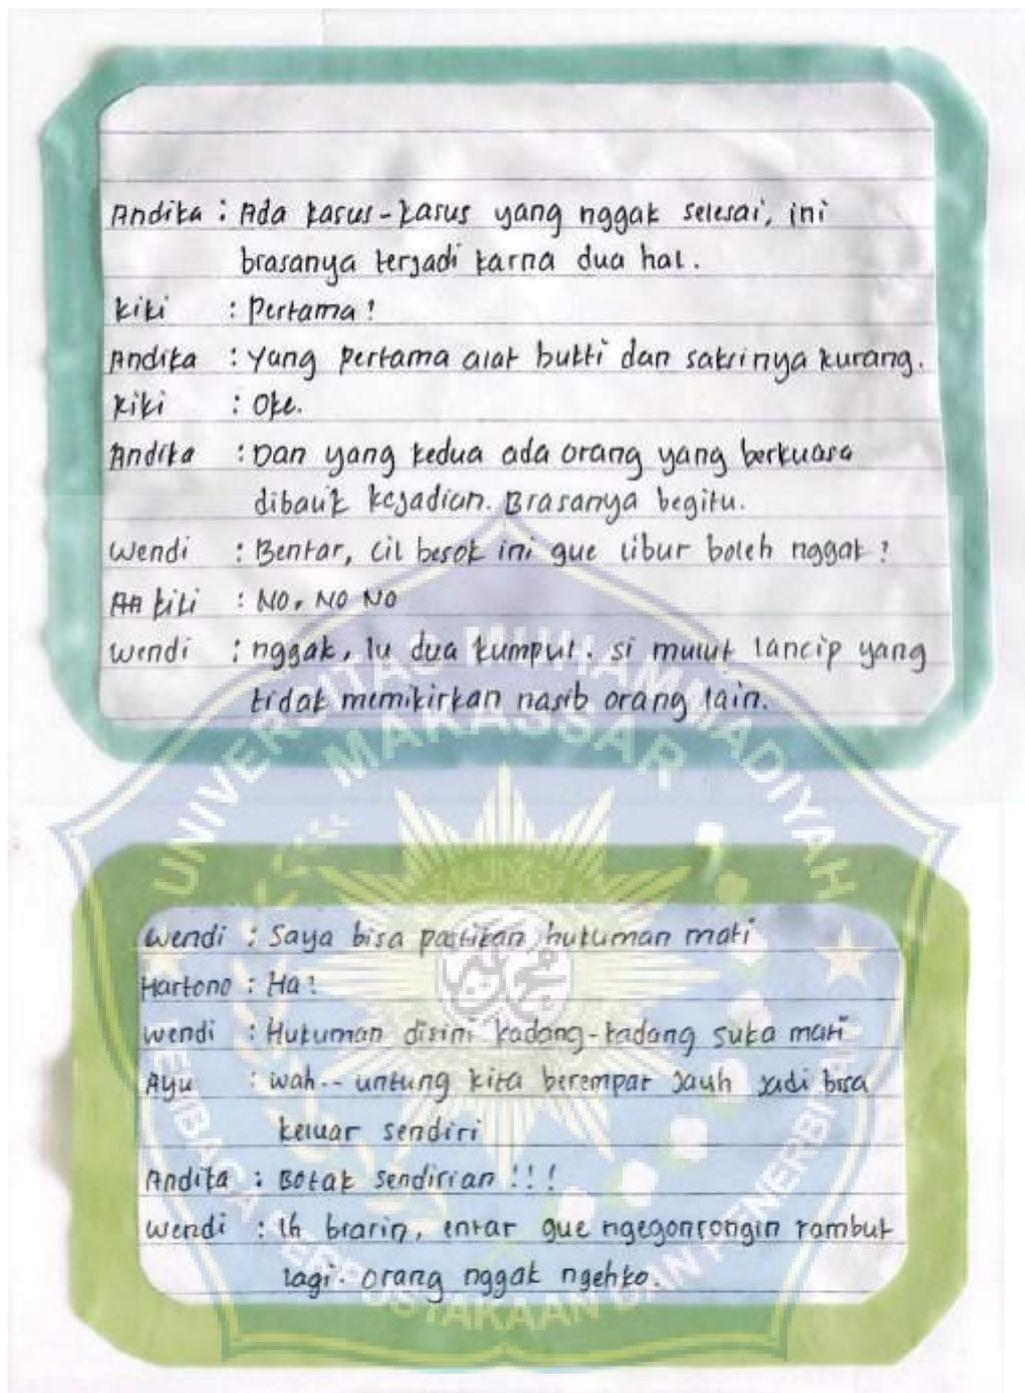 Andika : Ada kasus-kasus yang nggak selesai, ini
biasanya terjadi karna dua hal.
kiki : Pertama?
Andika : Yang pertama alat bukti dan saksinya kurang.
kiki : Oke.
Andika : Dan yang kedua ada orang yang berkuasa
dibalik kejadian. Biasanya begitu.
Wendi : Bentar, cil besok ini gue libur boleh nggak?
AA kiki : NO, NO NO
Wendi : nggak, lu dua kumpul. si mulut lancip yang
tidak memikirkan nasib orang lain.
UNIVERSITAS MUHAMMADIYAH
MAKASSAR
Wendi : Saya bisa pastikan hukuman mati
Hartono : Ha?
Wendi : Hukuman disini kadang-kadang suka mati
Ayu : wah-- untung kita berempat jauh jadi bisa
keluar sendiri
Andika : Botak sendirian!!!
Wendi : Ih biarin, entar gue ngegonrongin rambut
lagi. orang nggak
LEMBAGA PERPUSTAKAAN DAN PENERBITAN